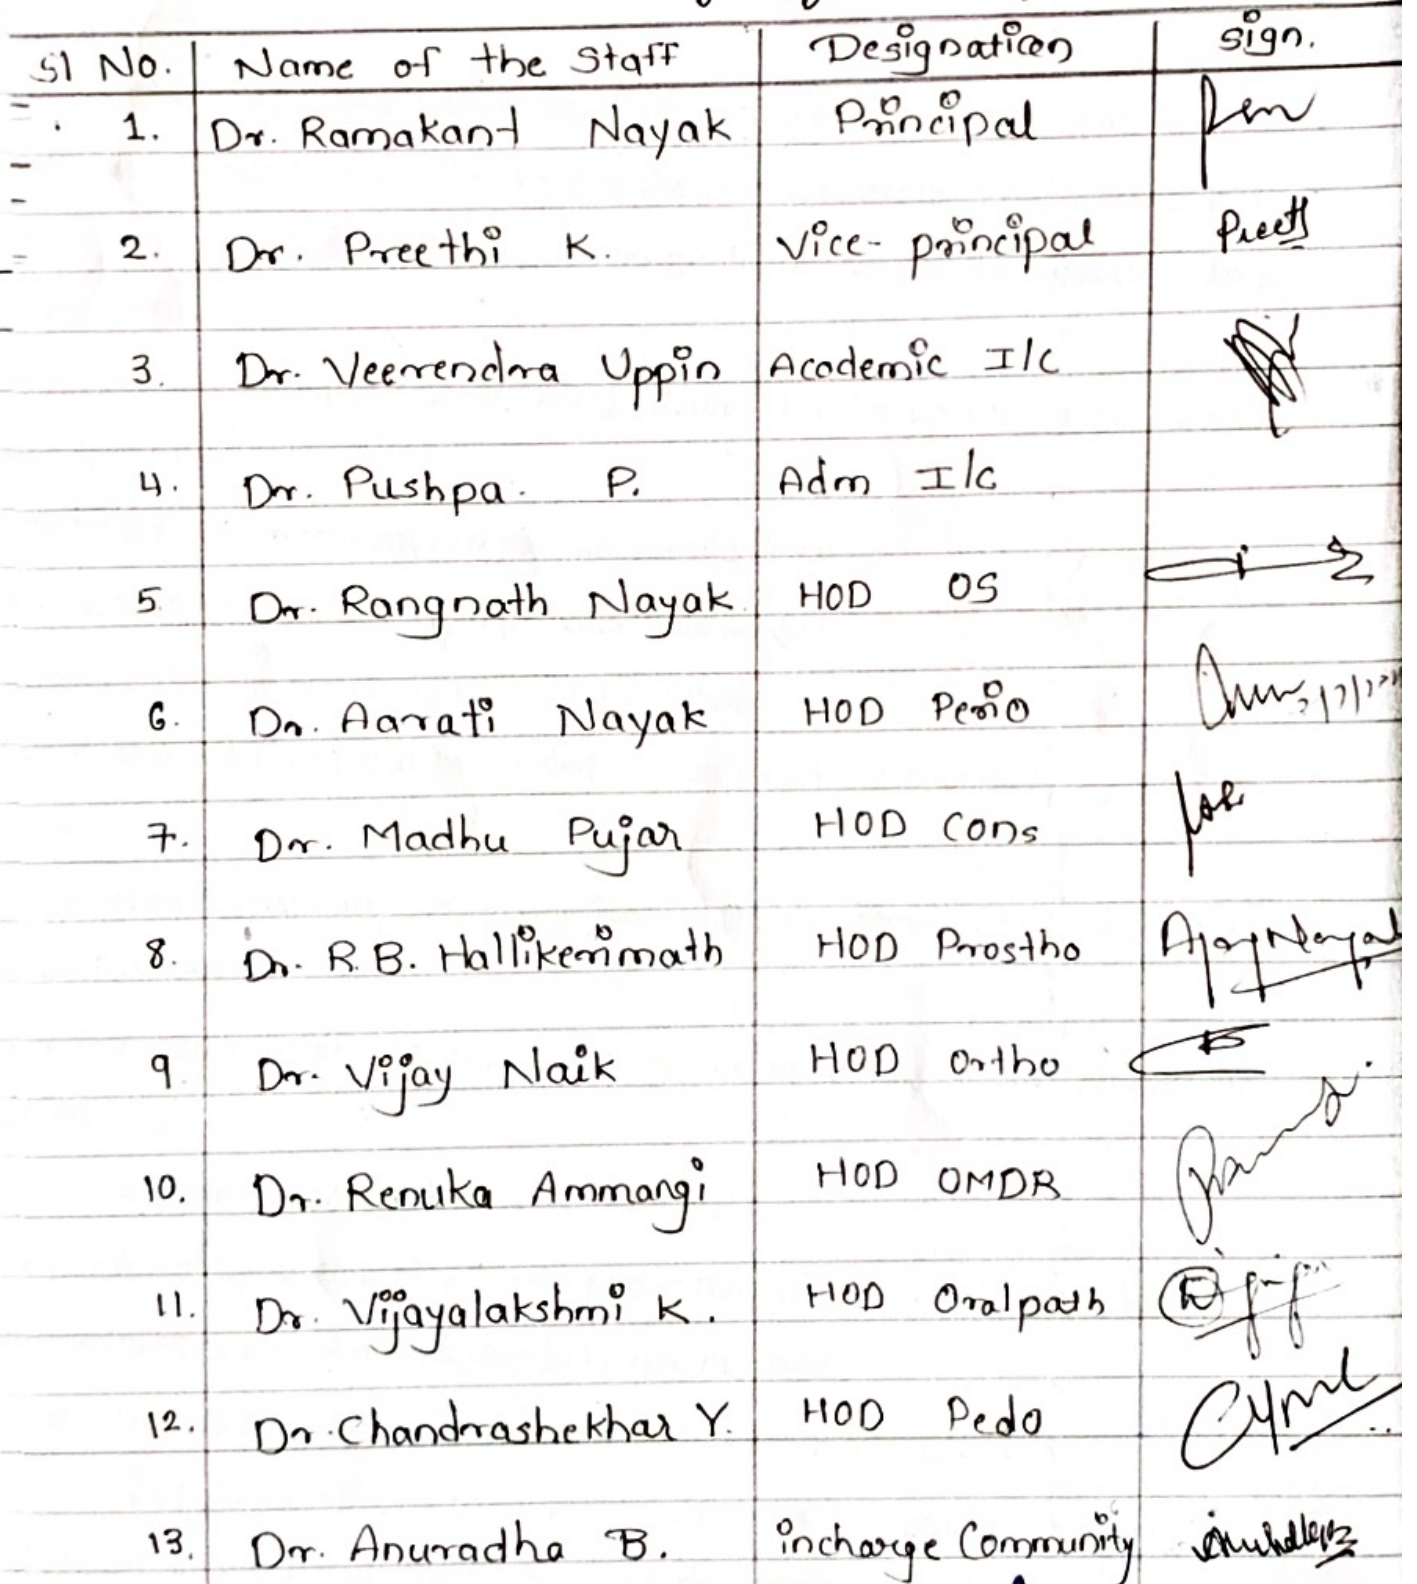 Sl No. Name of the Staff Designation Sign.
1. Dr. Ramakant Nayak Principal
2. Dr. Preethi K. Vice-principal Preeth
3. Dr. Veerendra Uppin Academic I/C
4. Dr. Pushpa. P. Adm I/C
5. Dr. Rangnath Nayak HOD OS
6. Dr. Aarati Nayak HOD Perio
7. Dr. Madhu Pujar HOD Cons
8. Dr. R.B. Hallikerimath HOD Prostho Ajay Nayak
9. Dr. Vijay Naik HOD Ortho
10. Dr. Renuka Ammangi HOD OMDR
11. Dr. Vijayalakshmi K. HOD Oralpath
12. Dr. Chandrashekhar Y. HOD Pedo
13. Dr. Anuradha B. incharge Community